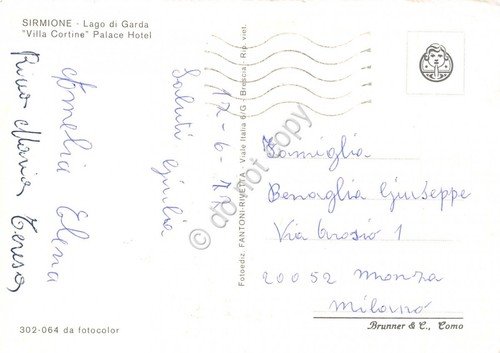 SIRMIONE - Lago di Garda
"Villa Cortine" Palace Hotel
17-6-77
Saluti Giulia
Amelia Elena
Rino Maria Teresa
Fotoediz. FANTONI-RIVETTA - Viale Italia 6/G - Brescia - Rip. viet.
Famiglia
Benaglia Giuseppe
Via 1
20052 Monza
Milano
302-064 da fotocolor
Brunner & C., Como
do not copy